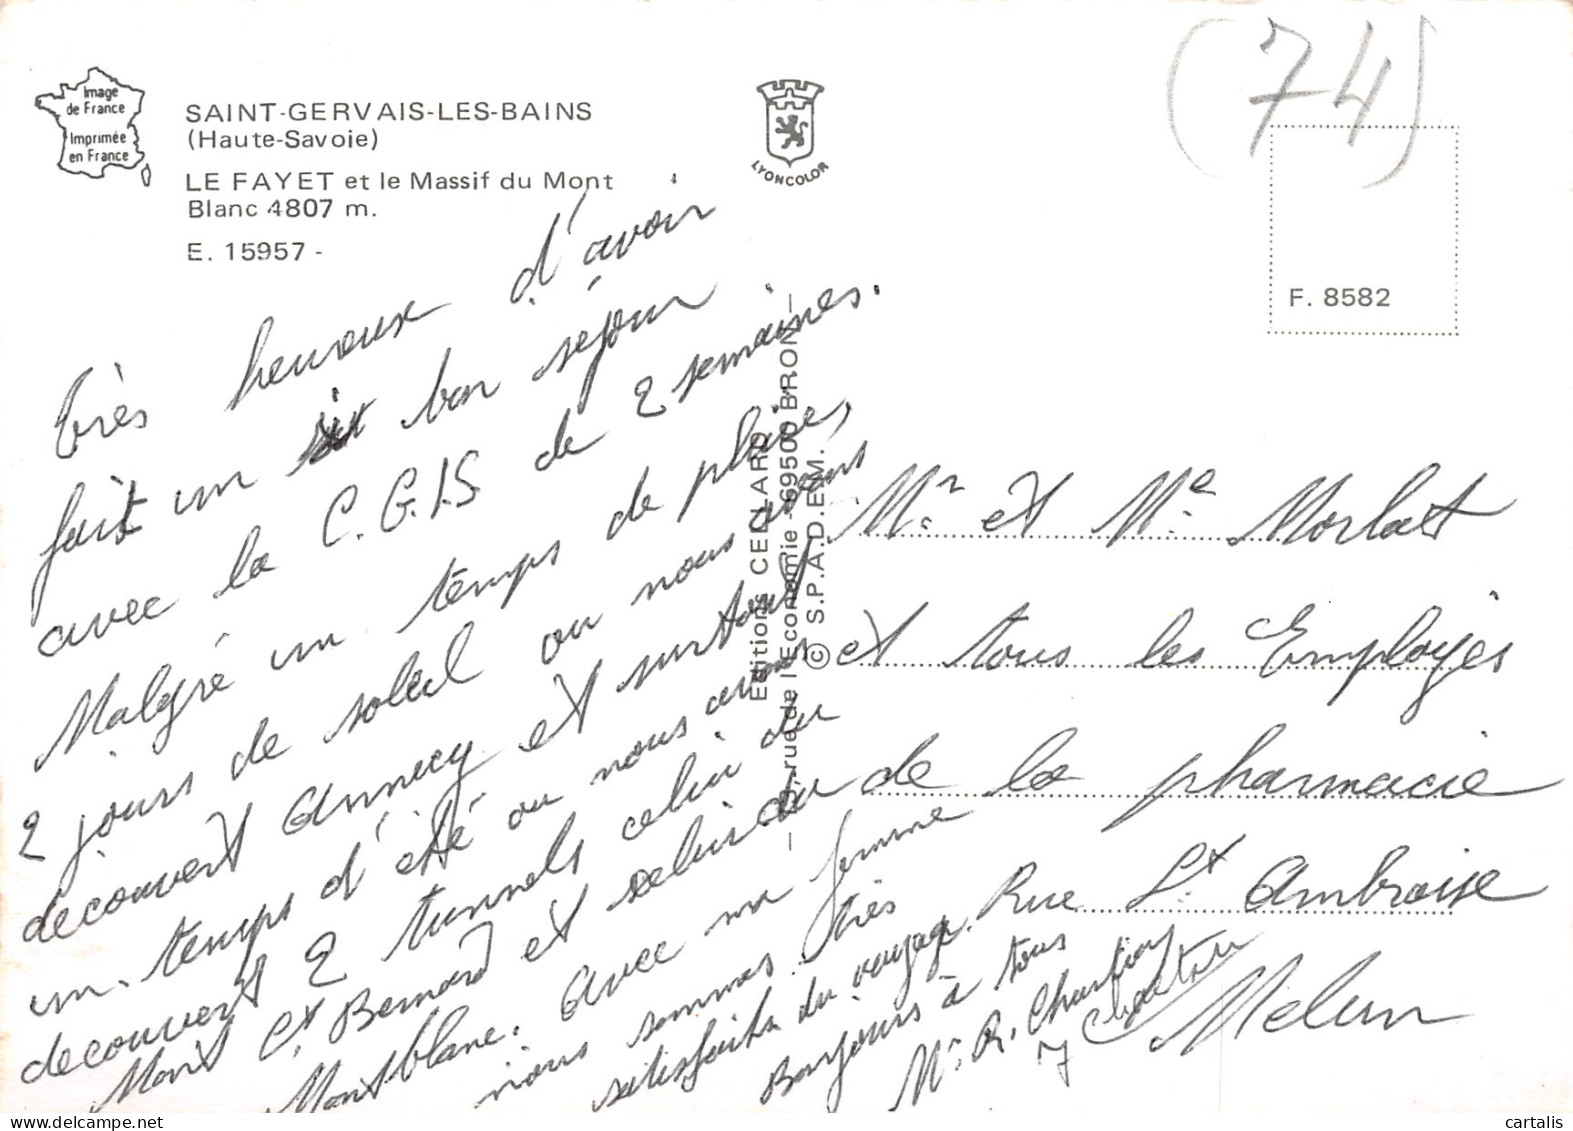 (74)
Image
de France
Imprimée
en France
SAINT-GERVAIS-LES-BAINS
(Haute-Savoie)
LE FAYET et le Massif du Mont
Blanc 4807 m.
E. 15957 -
LYONCOLOR
F. 8582
Editions CELLARD
rue de l'Economie - 69500 BRON
© S.P.A.D.E.M.
très heureux d'avoir
fait un bon séjour
avec la C.G.I.S de 2 semaines.
Malgré un temps de pluies,
2 jours de soleil ou nous avons
découvert Annecy et surtout
un temps d'été ou nous avons
découvert 2 tunnels celui du
Mont St Bernard et celui du
Montblanc. Avec ma femme
nous sommes très
satisfaits du voyage.
Bonjours à tous
Mr R.
Mr et Me Morlat
et tous les Employés
de la pharmacie
Rue St Ambroise
Melun
cartalis